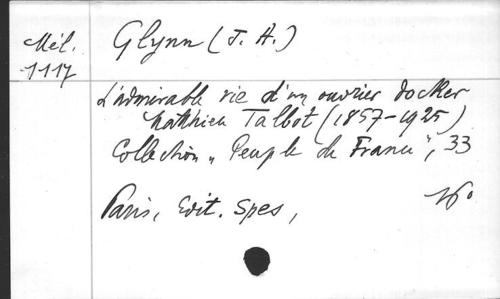 Mél.
1117
Glynn (J. A.)
L'admirable vie d'un ouvrier docker
Matthieu Talbot (1857-1925)
Collection „Peuple de France", 33
Paris, Edit. Spes,
16°